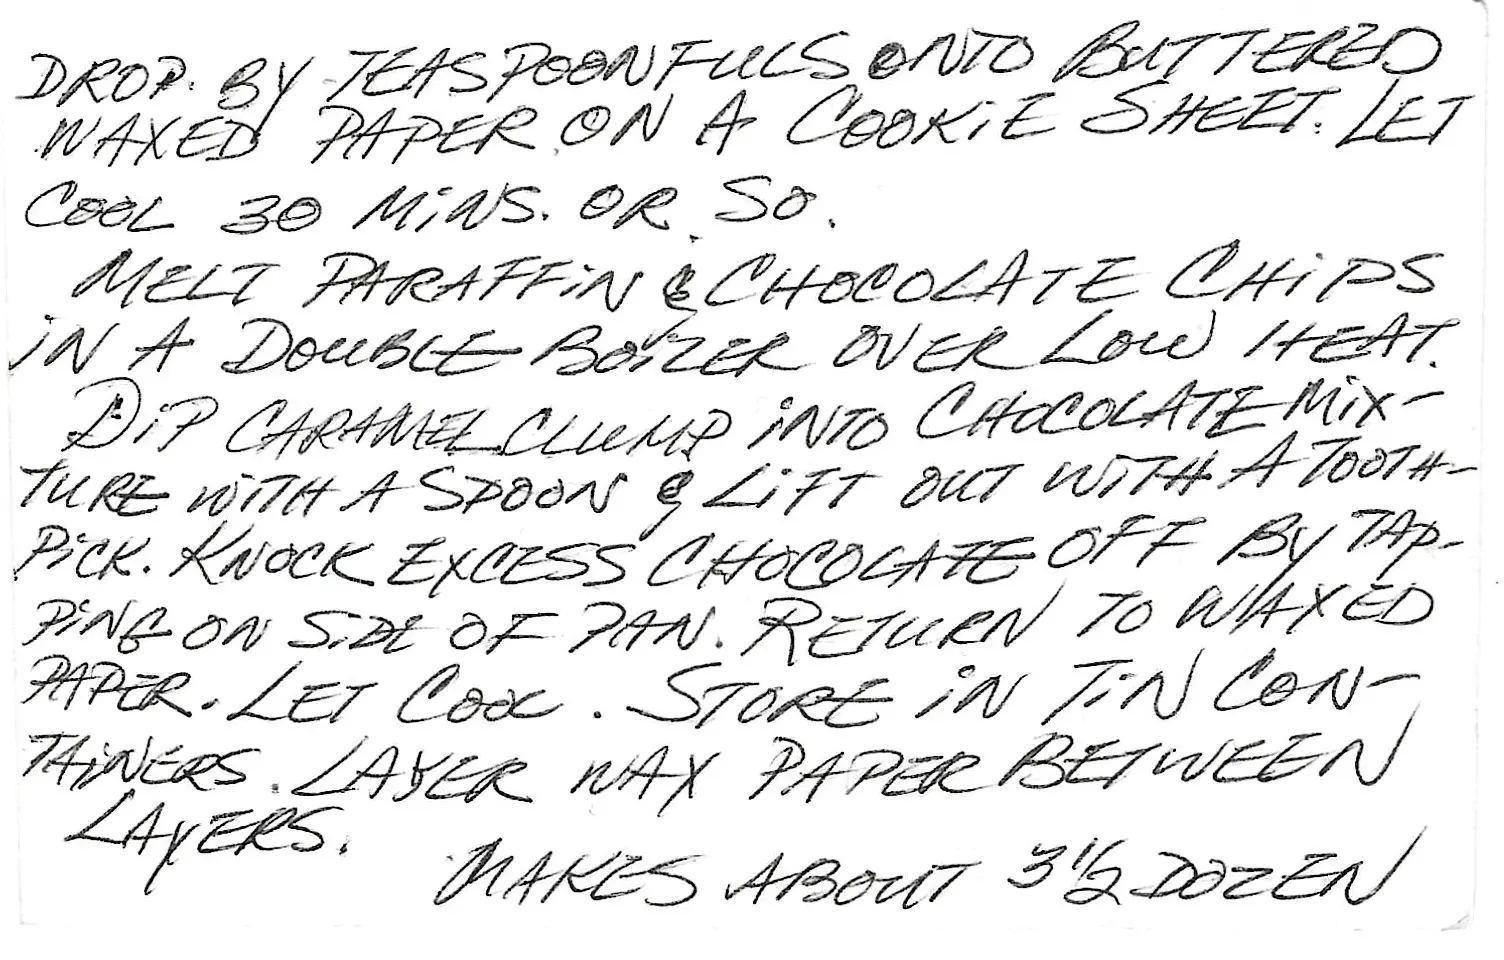 DROP BY TEASPOONFULS ONTO BUTTERED
WAXED PAPER ON A COOKIE SHEET. LET
COOL 30 MINS. OR SO.
MELT PARAFFIN & CHOCOLATE CHIPS
IN A DOUBLE BOILER OVER LOW HEAT.
DIP CARAMEL CLUMP INTO CHOCOLATE MIX-
TURE WITH A SPOON & LIFT OUT WITH A TOOTH-
PICK. KNOCK EXCESS CHOCOLATE OFF BY TAP-
PING ON SIDE OF PAN. RETURN TO WAXED
PAPER. LET COOL. STORE IN TIN CON-
TAINERS. LAYER WAX PAPER BETWEEN
LAYERS.
MAKES ABOUT 3 1/2 DOZEN